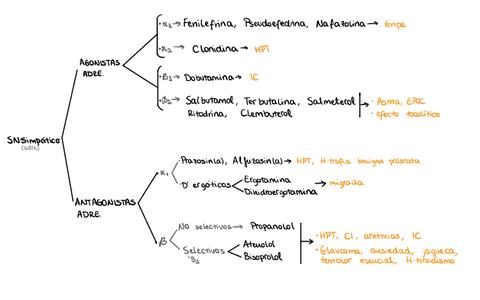 •α₁→ Fenilefrina, Pseudoefedrina, Nafazolina → Gripe
•α₂→ Clonidina → HPT
AGONISTAS
ADRE.
•β₁→ Dobutamina → IC
•β₂→ Salbutamol, Terbutalina, Salmeterol
Ritodrina, Clembuterol
• Asma, EPOC
• efecto tocolítico
SNSimpático
ANTAGONISTAS
ADRE.
α₁
Prazosin(a), Alfuzosin(a) → HPT, H·trofia benigna próstata
D' ergóticos
Ergotamina
Dihidroergotamina
→ migraña
β
No selectivos → Propanolol
Selectivos
β₁
Atenolol
Bisoprolol
• HPT, CI, arritmias, IC
• Glaucoma, ansiedad, jaqueca,
temblor esencial, H·tiroidismo